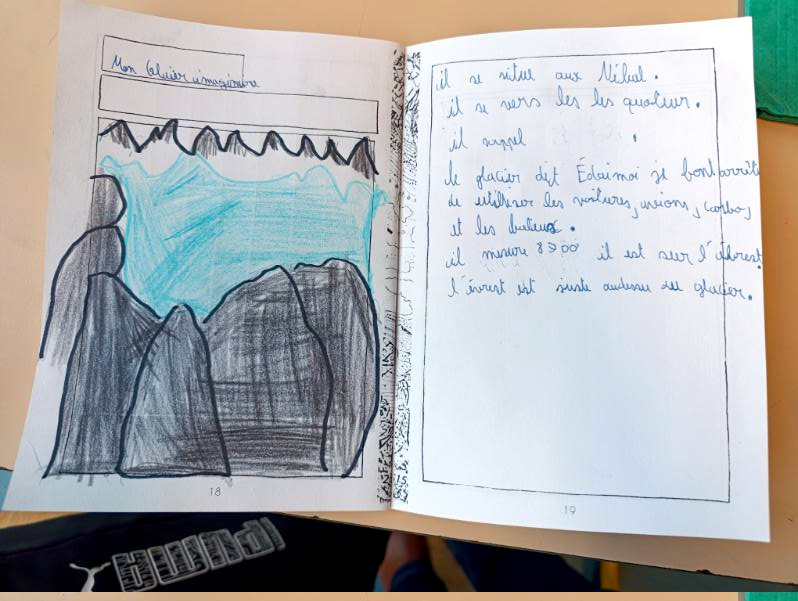 Mon Glacier imaginaire
18
il se situe aux Nébal.
il se vers les les quateur.
il rappel
le glacier dit Édaimoi je font arrête
de utiliser les voitures, avions, carbo,
et les bateux.
il mesure 8700 il est sur l'éverest
l'éverst est juste audessu du glacier.
19
PUMA